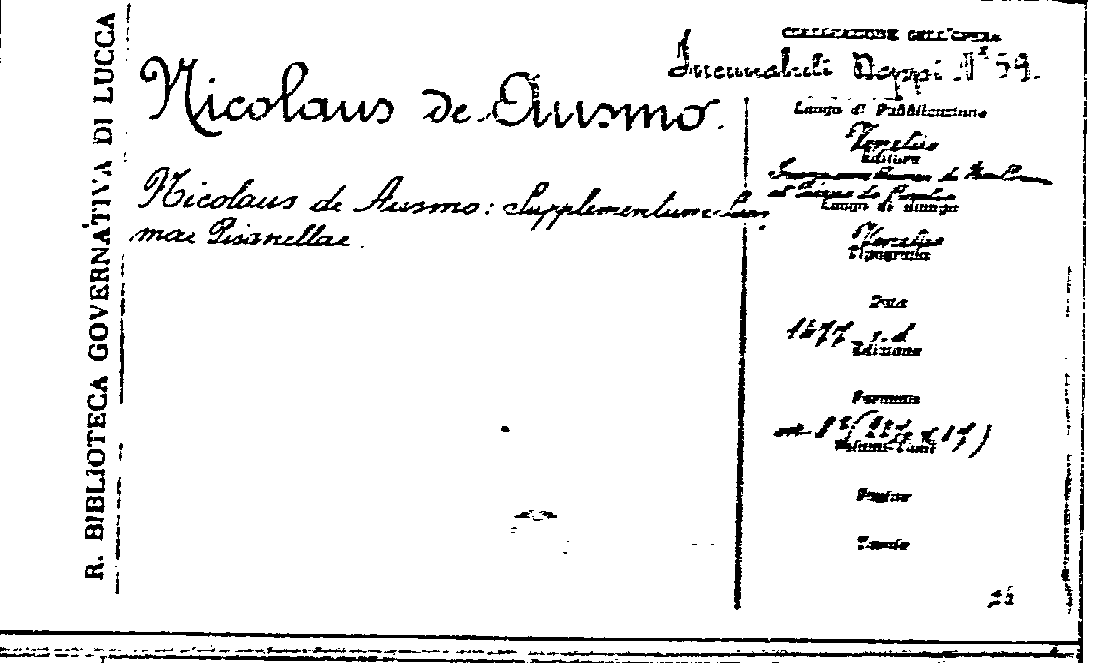 R. BIBLIOTECA GOVERNATIVA DI LUCCA
Nicolaus de Ausmo.
Nicolaus de Ausmo: Supplementum Sum
mae Pisanellae.
COLLOCAZIONE DELL'OPERA
Incunabuli Doppi N° 59.
Luogo di Pubblicazione
Venetiis
Editore
et
Luogo di stampa
Venetiis
Tipografia
Data
1477
Edizione
Formato
in 8°
Volumi-Tomi
Pagine
Tavole